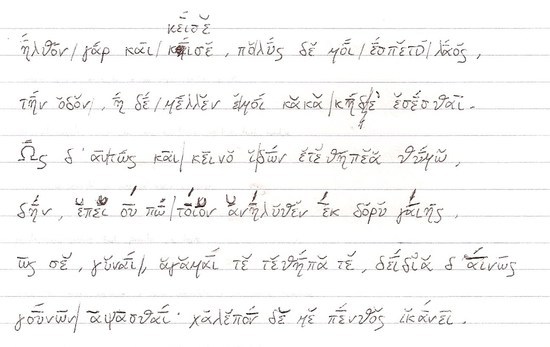 κεῖσε
ἦλθον/γάρ καὶ/κεῖσέ, πολύς δέ μοι/ἕσπετο/λαός,
τὴν ὁδόν, ᾗ δέ/μέλλεν ἐμοί κακά/κήδε' ἔσεσθαι.
Ὣς δ' αὔτως καὶ/κεῖνο ἰδών ἐτεθήπεα θυμῷ,
δήν, ἐπεί οὔ πω/τοῖον ἀνήλυθεν ἐκ δόρυ γαίης,
ὥς σέ, γύναι/, ἄγαμαί τε τέθηπά τε, δείδια δ' αἰνῶς
γούνων/ἅψασθαι· χαλεπόν δέ με πένθος ἱκάνει.